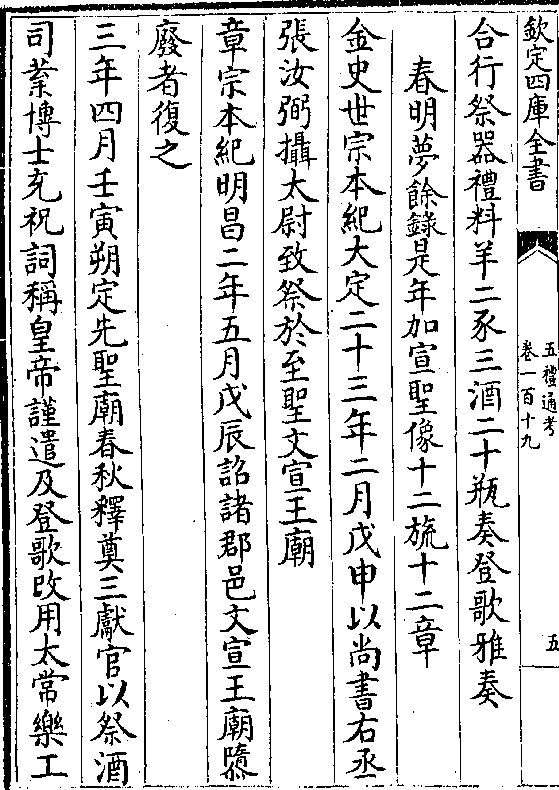 欽定四庫全書
五禮通考
卷一百十九
五
合行祭器禮料羊二豕三酒二十瓶奏登歌雅奏
春明夢餘錄是年加宣聖像十二旒十二章
金史世宗本紀大定二十三年二月戊申以尚書右丞
張汝弼攝太尉致祭於至聖文宣王廟
章宗本紀明昌二年五月戊辰詔諸郡邑文宣王廟隳
廢者復之
三年四月壬寅朔定先聖廟春秋釋奠三獻官以祭酒
司業博士充祝詞稱皇帝謹遣及登歌改用太常樂工